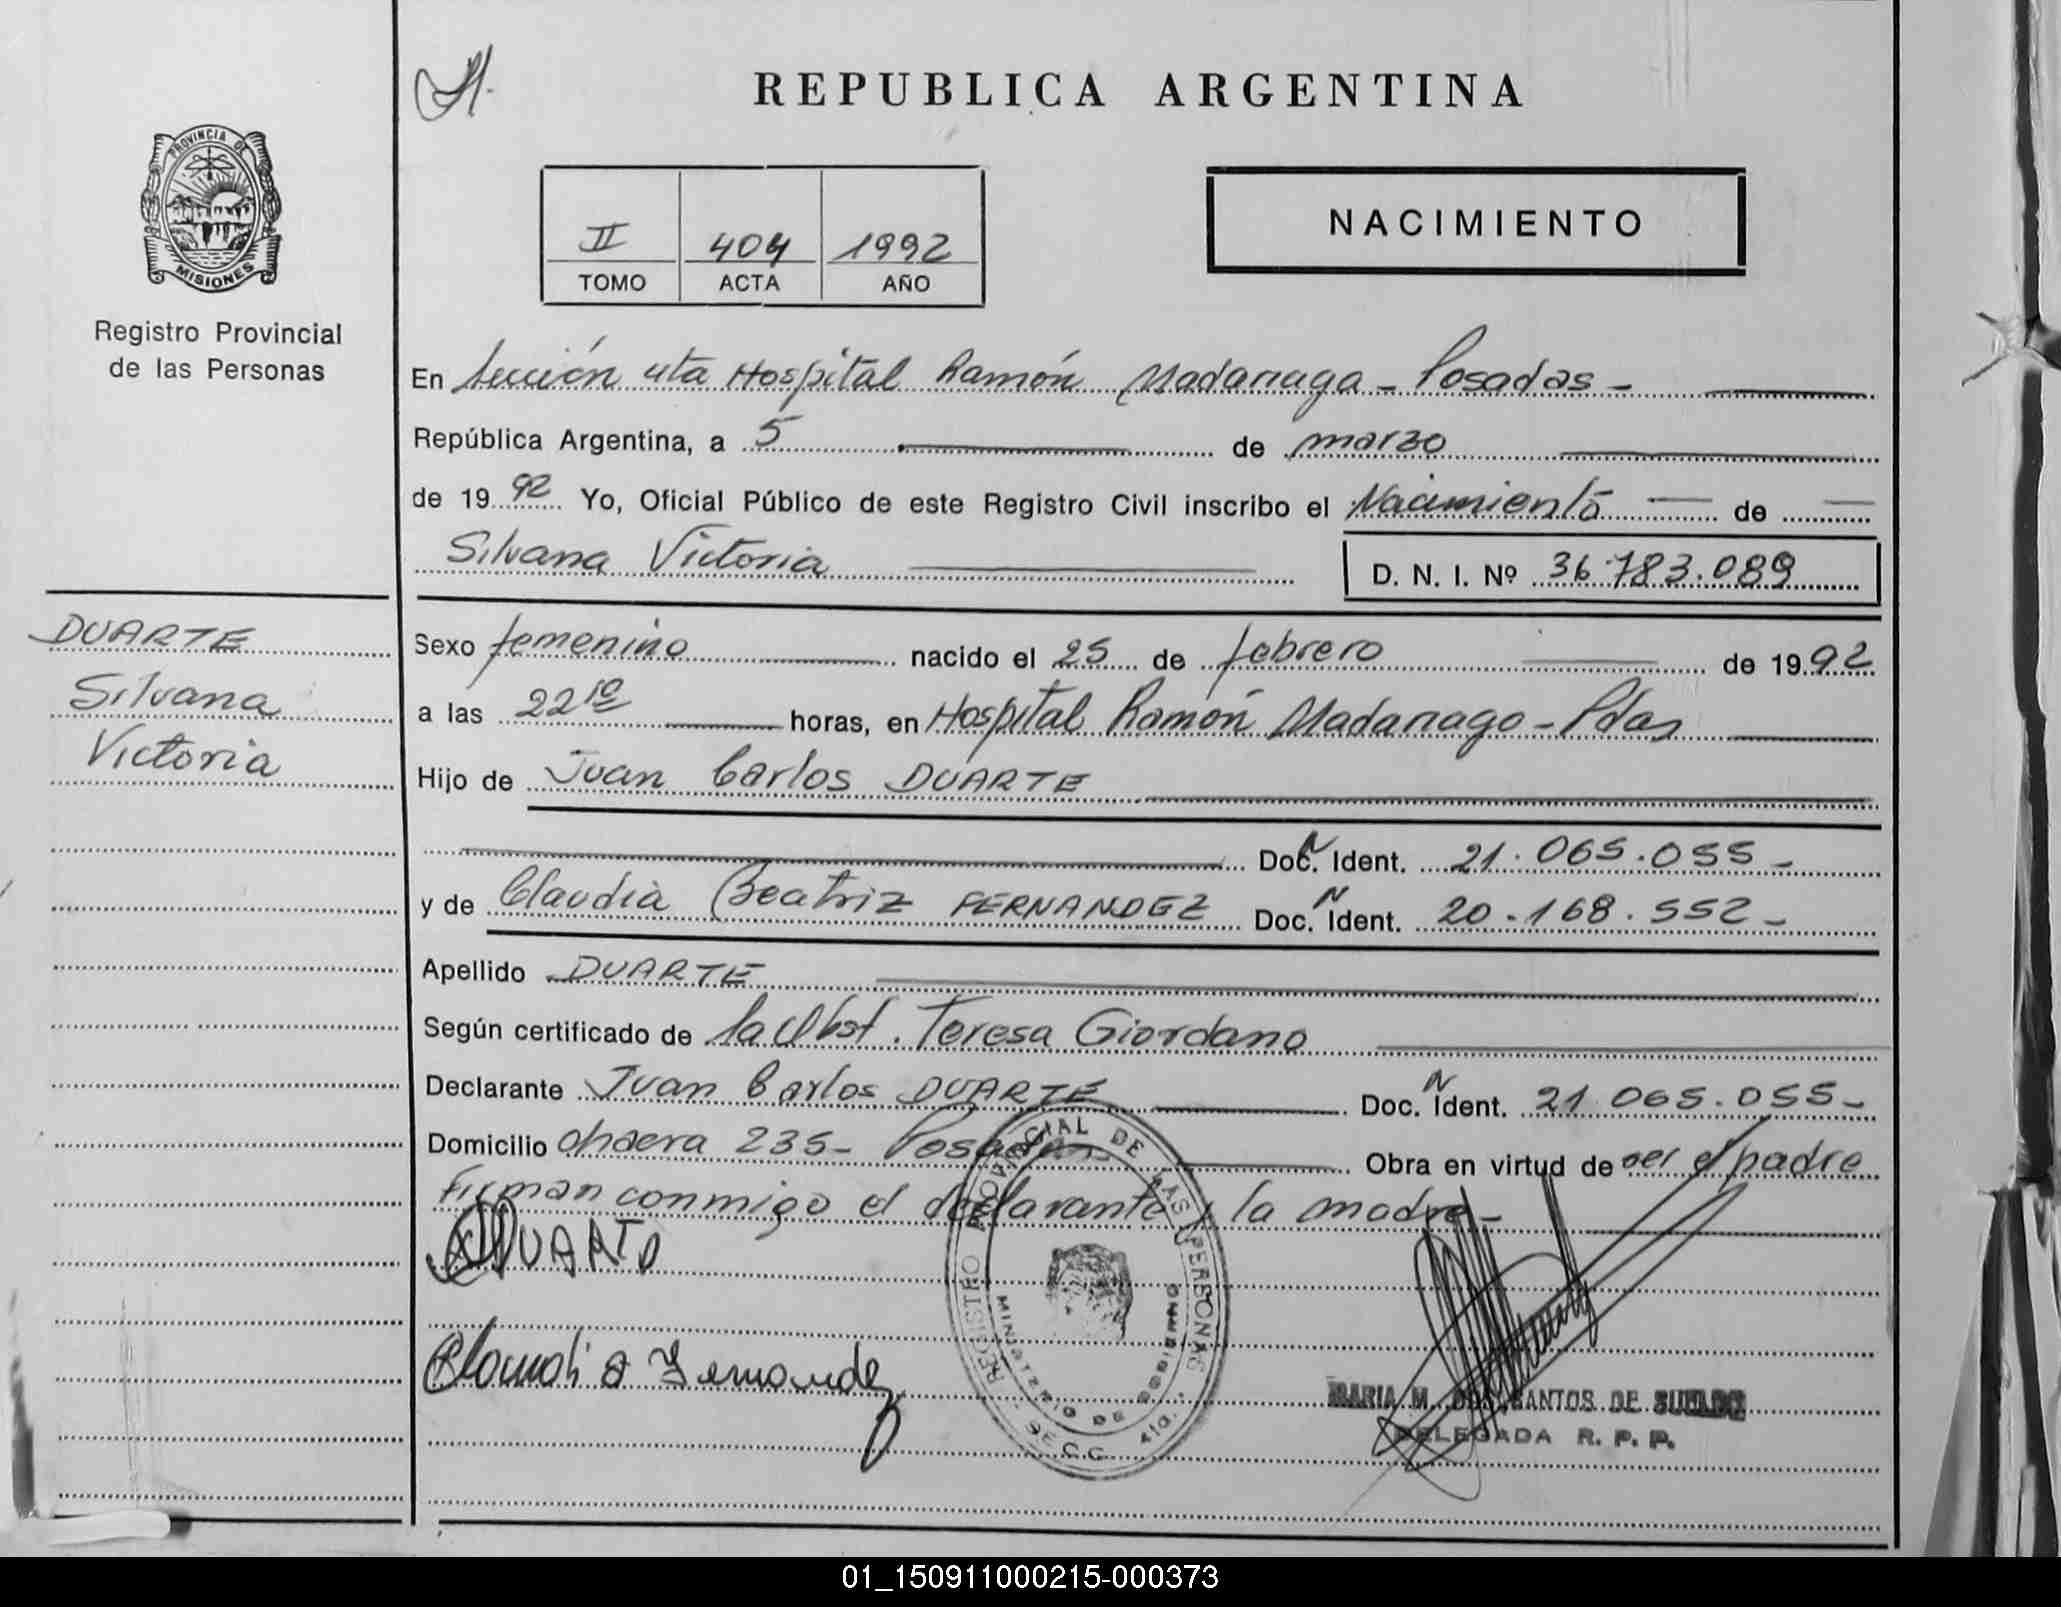 REPUBLICA ARGENTINA
PROVINCIA DE
MISIONES
Registro Provincial
de las Personas
II 404 1992
TOMO ACTA AÑO
NACIMIENTO
En Sección 4ta Hospital Ramón Madariaga - Posadas -
República Argentina, a 5 de marzo
de 1992 Yo, Oficial Público de este Registro Civil inscribo el Nacimiento de
Silvana Victoria
D. N. I. Nº 36.783.089
DUARTE
Silvana
Victoria
Sexo femenino nacido el 25 de febrero de 1992
a las 22 10 horas, en Hospital Ramón Madariaga - Pdas
Hijo de Juan Carlos DUARTE
Doc. N Ident. 21.065.055-
y de Claudia Beatriz FERNANDEZ Doc. N Ident. 20.168.552-
Apellido DUARTE
Según certificado de la Obst. Teresa Giordano
Declarante Juan Carlos DUARTE Doc. N Ident. 21.065.055-
Domicilio 235- Posadas Obra en virtud de ser el padre
Firman conmigo el declarante y la madre-
DUARTE
Claudia Fernandez
REGISTRO PROVINCIAL DE LAS PERSONAS
MINISTERIO DE GOBIERNO
SECC. 4ta.
MARIA M. DOS SANTOS DE
DELEGADA R. P. P.
01_150911000215-000373